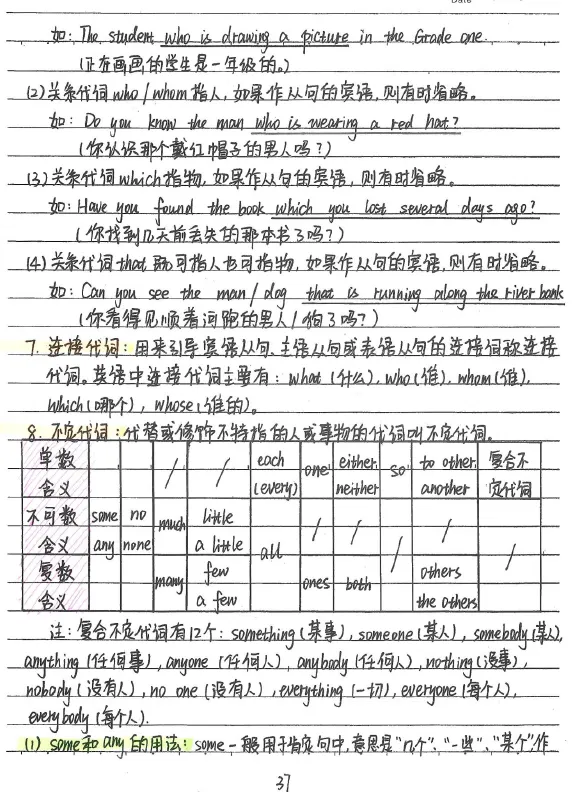 Date
如: The student who is drawing a picture in the Grade one.
(正在画画的学生是一年级的。)
(2)关系代词who/whom指人,如果作从句的宾语,则有时省略。
如: Do you know the man who is wearing a red hat?
(你认识那个戴红帽子的男人吗?)
(3)关系代词which指物,如果作从句的宾语,则有时省略。
如: Have you found the book which you lost several days ago?
(你找到几天前丢失的那本书了吗?)
(4)关系代词that既可指人也可指物,如果作从句的宾语,则有时省略。
如: Can you see the man/dog that is running along the river bank
(你看得见顺着河跑的男人/狗了吗?)
7. 连接代词:用来引导宾语从句、主语从句或表语从句的连接词称连接
代词。英语中连接代词主要有: what (什么), who (谁), whom (谁),
which (哪个), whose (谁的)。
8. 不定代词:代替或修饰不特指的人或事物的代词叫不定代词。
单数 / / each one either so to other 复合不
含义 (every) neither another 定代词
不可数 some no much little / / /
含义 any none a little all / /
复数 many few ones both others
含义 a few the others
注:复合不定代词有12个: something (某事), someone (某人), somebody (某人),
anything (任何事), anyone (任何人), anybody (任何人), nothing (没事),
nobody (没有人), no one (没有人), everything (一切), everyone (每个人),
everybody (每个人).
(1) some和any的用法: some一般用于肯定句中,意思是"几个"、"一些"、"某个"作
37